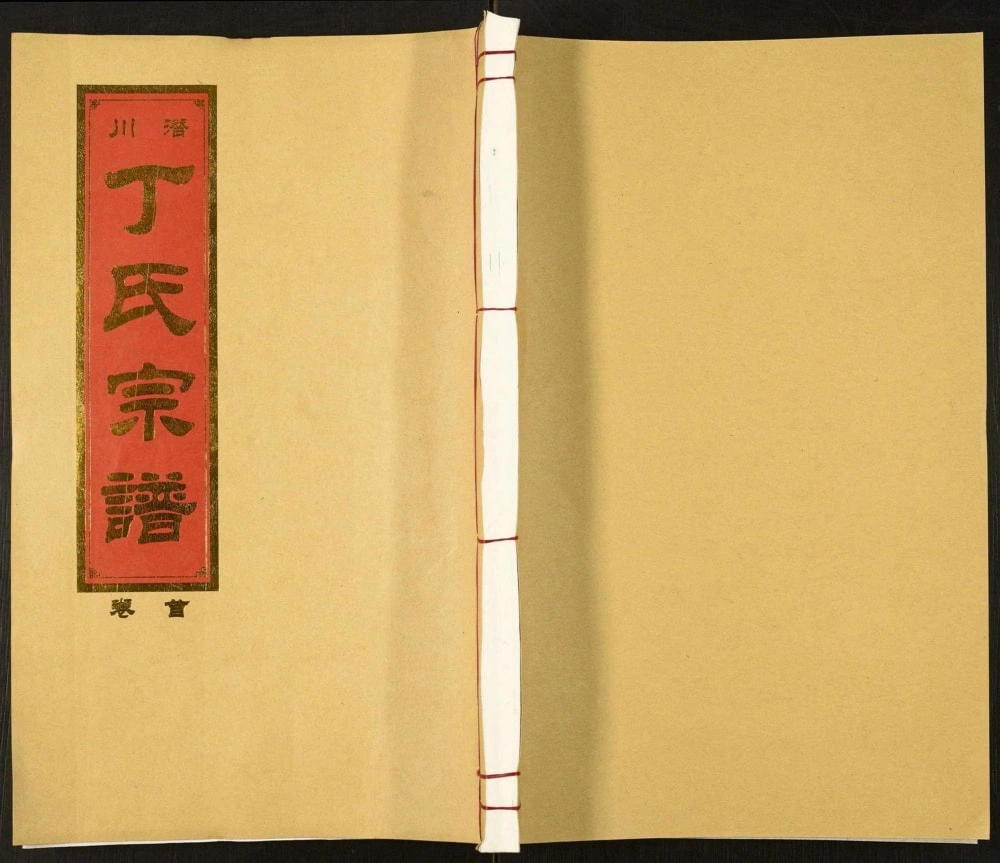 潛川
丁氏宗譜
首卷